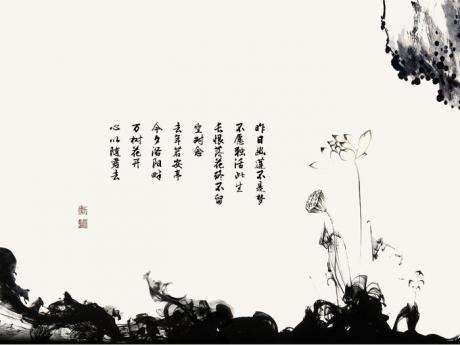 昨日幽莲不是梦
不愿独活此生
长恨落花终不留
空对
去年若安亭
今夕洛阳畔
万树花开
心以随君去